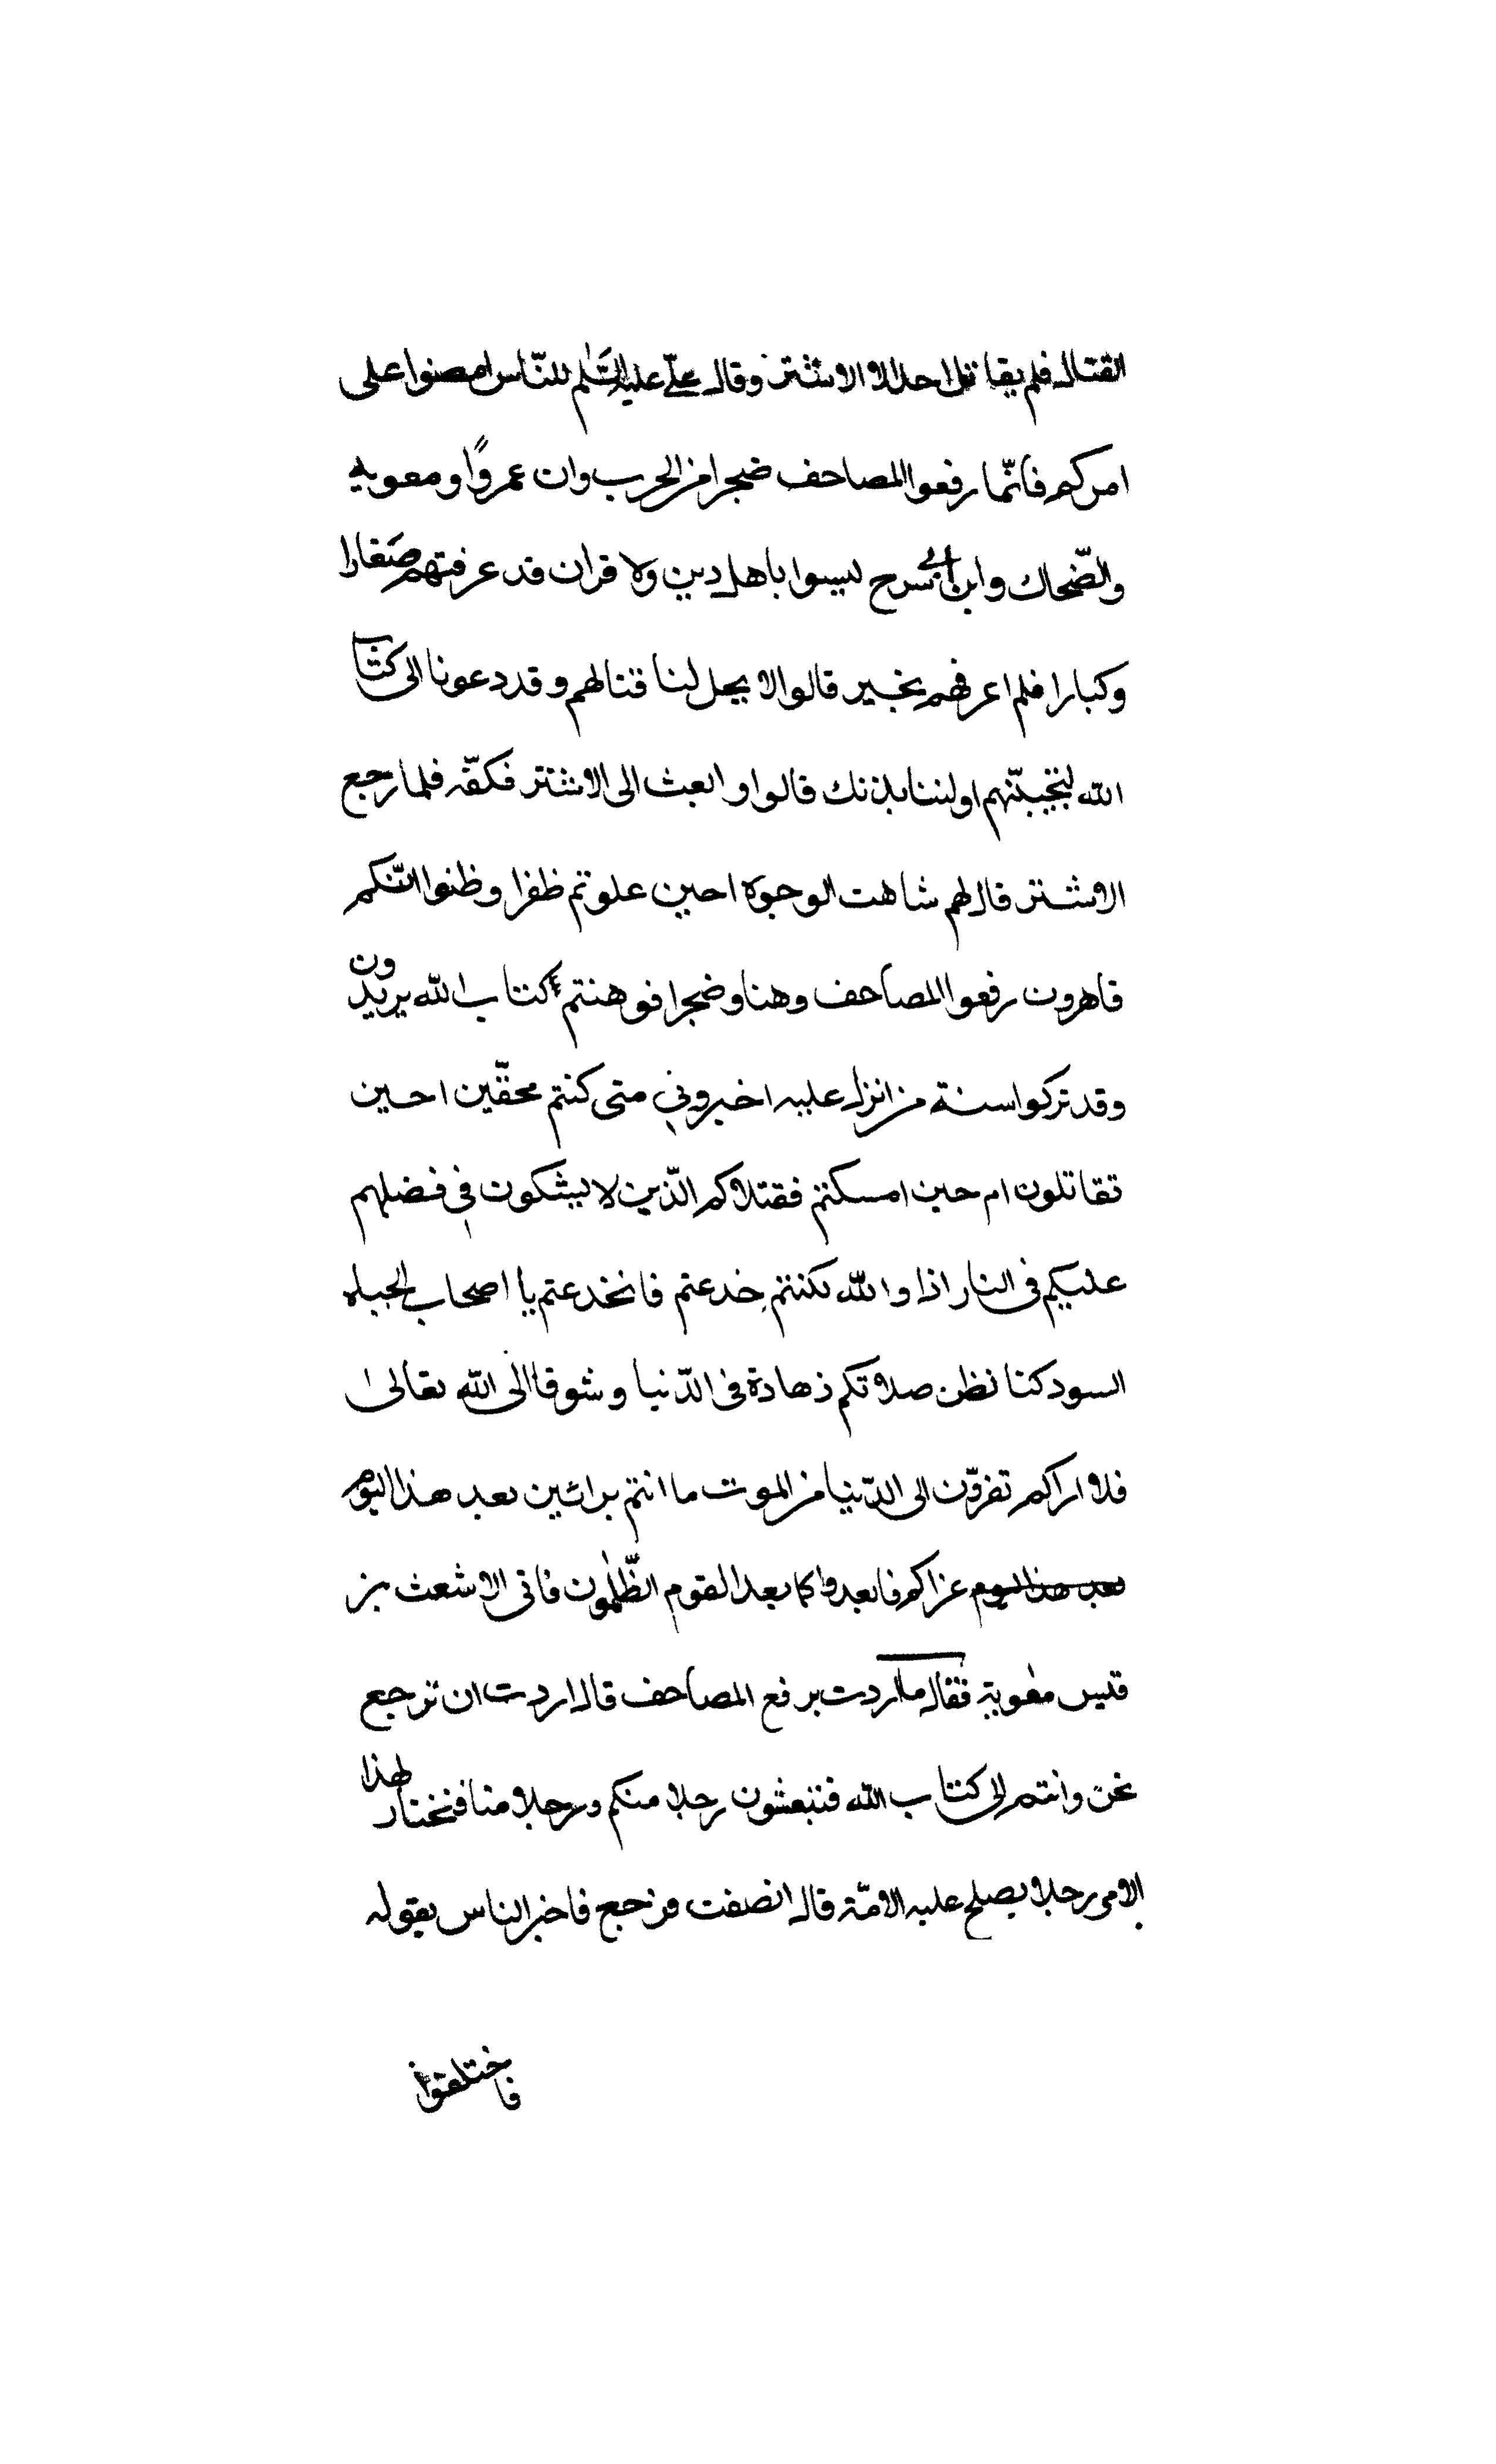 القتال فلم يقاتل احد الا الاشتر وقال علىّ عليه السّلم للنّاس امضوا على
امركم فانّما رفعوا المصاحف ضجرا من الحرب وان عمروًا ومعويه
والضّحاك وابن ابى سرح ليسوا باهل دين ولا قران قد عرفتهم صغارا
وكبارا فلم اعرفهم بخير قالوا لا يحل لنا قتالهم وقد دعونا الى كتاب
الله لتجيبنّهم او لننابذنك قالوا وابعث الى الاشتر فكفّه فلما رجع
الاشتر قال لهم شاهت الوجوه احين علوتم ظفرا وظنوا انّكم
قاهرون رفعوا المصاحف وهنا وضجرا فوهنتم كتاب الله يريدون
وقد تركوا سنة من انزل عليه اخبرونى متى كنتم محقّين احين
تقاتلون ام حين امسكتم فقتلاكم الّذين لا يشكون فى فضلهم
عليكم فى النار اذا والله لكنتم خدعتم فانخدعتم يا اصحاب الجباه
السود كنا نظن صلاتكم زهادة فى الدّنيا وشوقا الى الله تعالى
فلا اراكم تفرّون الى الدّنيا من الموت ما انتم برائين بعد هذا اليوم
بعد هذا اليوم عزا كم فابعدوا كما بعد القوم الظّلمون فاتى الاشعث بن
قيس معوية فقال ما اردت برفع المصاحف قال اردت ان نرجع
نحن وانتم الى كتاب الله فتبعثون رجلا منكم ورجلا منا فنختار لهذا
الامر رجلا يصلح عليه الامّة قال انصفت فرجع فاخبر الناس بقوله
فاختلفوا